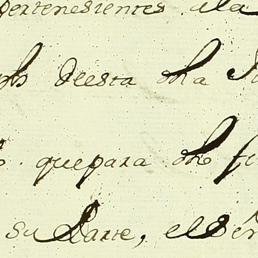 pertenesientes ala
deesta dha
quepara dho
su Parte, el